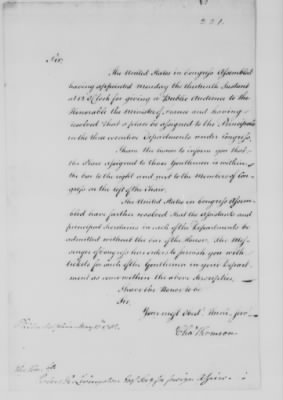 221.
Sir,
The United States in Congress Assembled
having appointed Monday the thirteenth Instant
at 12 o'Clock for giving a Public Audience to the
Honorable the Minister of France and having
resolved that a place be assigned to the Principals
in the three executive Departments under Congress,
I have the honor to inform you that
the place assigned to those Gentlemen is within
the bar to the right and next to the Members of Con-
gress on the left of the Chair.
The United States in Congress Assem-
bled have farther resolved that the assistants and
principal Secretaries in each of the Departments be
admitted without the bar of the House. The Mes-
senger of Congress has orders to furnish you with
tickets for such of the Gentlemen in your Depart-
ment as come within the above description.
I have the Honor to be
Sir
Your most Obedt. Servt.
Chas Thomson
May 1782.
The Hon.
Robert R. Livingston Foreign Affairs